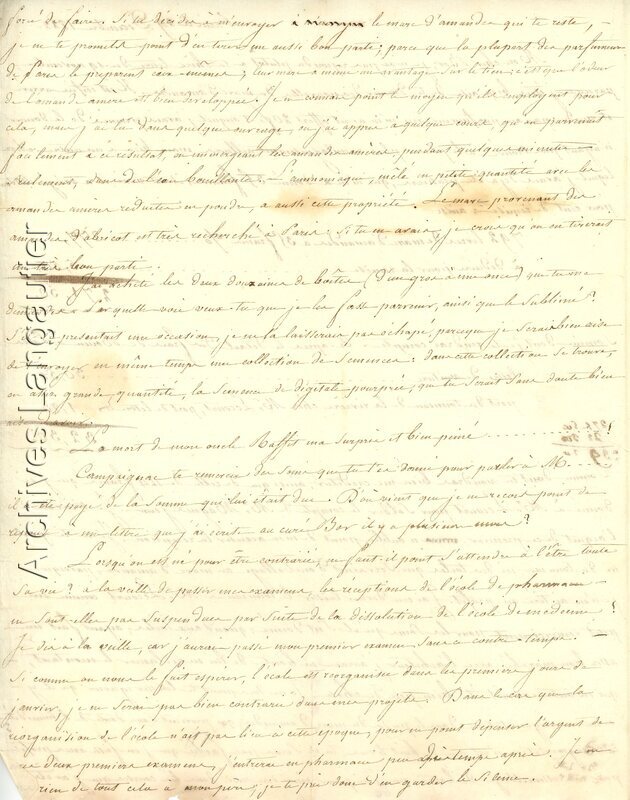 forcé de faire. Si tu décides à m'envoyer le marc d'amandes qui te reste, —
je ne te promets point d'en tirer un aussi bon parti; parce que la plupart des parfumeurs
de Paris le préparent eux mêmes; leur marc a même un avantage sur le tien: c'est que l'odeur
de l'amande amère est bien développée. Je ne connais point le moyen qu'ils employent pour
cela, mais j'ai lu dans quelque ouvrage, ou j'ai appris à quelque cours, qu'on parvenait
facilement à ce résultat, en immergeant les amandes amères pendant quelques minutes —
seulement, dans de l'eau bouillante. L'ammoniaque, mêlé en petite quantité avec les
amandes amères réduites en poudre, a aussi cette propriété. Le marc provenant des
amandes d'abricot est très recherché à Paris: si tu en avais, je crois qu'on en tirerait
un très bon parti.
J'ai acheté les deux douzaines de boîtes (d'un gros à une once) que tu me
demandes. Par quelle voie veux-tu que je les fasse parvenir, ainsi que le sublimé?
S'il se présentait une occasion, je ne la laisserais pas échapé, parceque je serais bien aise
de t'envoyer en même temps une collection de semences: dans cette collection se trouve,
en assez grande quantité, la semence de digitale pourprée, que tu serais sans doute bien
aise d'avoir.
La mort de mon oncle Raffet m'a surpris et bien peiné .......... !
Campaignac te remercie des soins que tu t'es donné pour parler à M.....
il a été payé de la somme qui lui était due. D'où vient que je ne reçois point de
réponse à une lettre que j'ai écrite au curé Bor il y a plusieurs mois?
Lorsqu'on est né pour être contrarié, ne faut-il point s'attendre à l'être toute
sa vie? à la veille de passer mes examens, les réceptions de l'école de pharmacie
ne sont-elles pas suspendues par suite de la dissolution de l'école de médecine?
Je dis à la veille, car j'aurais passé mon premier examen sans ce contre-temps. —
Si comme on nous le fait espérer, l'école est réorganisée dans les premiers jours de
janvier, je ne serai pas bien contrarié dans mes projets. Dans le cas que la
réorganisation de l'école n'ait pas lieu à cette époque, pour ne point dépenser l'argent de
ces deux premiers examens, j'entrerai en pharmacie peu de temps après. Je ne
rien de tout cela à mon père; je te prie donc d'en garder le silence.
Archives J-Langaulier